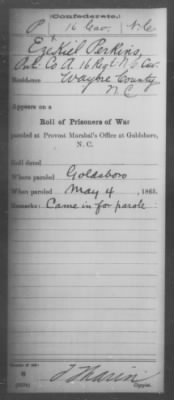 (Confederate.)
P 16 Cav. N.C.
Ezekiel Perkins,
Pvt. Co A. 16 Regt N.C. Cav.
Residence Wayne County
N.C.
Appears on a
Roll of Prisoners of War
paroled at Provost Marshal's Office at Goldsboro,
N. C.
Roll dated
Where paroled Goldsboro
When paroled May 4, 1865.
Remarks: Came in for parole
Copyist.